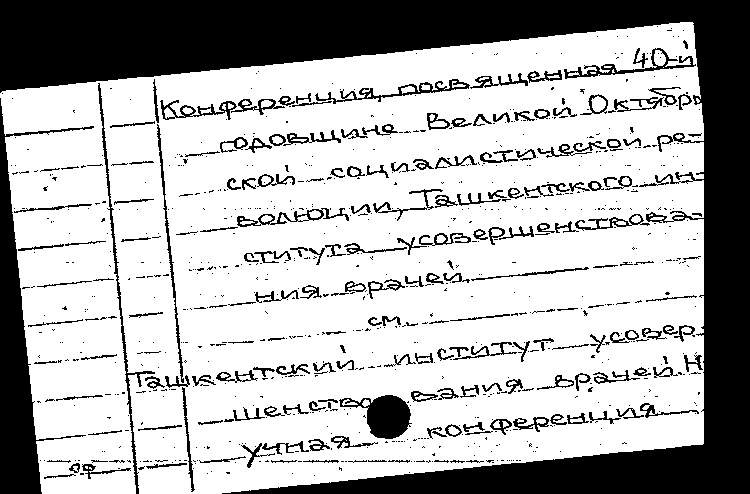 Конференция, посвященная 40-й
годовщине Великой Октябрь
ской социалистической ре-
волюции, Ташкентского ин-
ститута усовершенствова-
ния врачей
см.
Ташкентский институт усовер
шенство вания врачей. Н
учная конференция